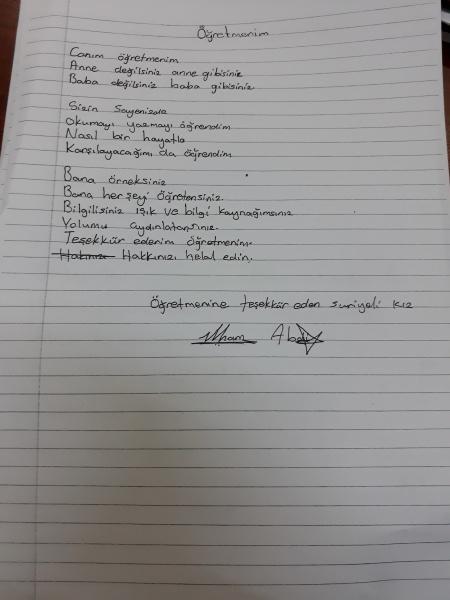 Öğretmenim
Canım öğretmenim
Anne değilsiniz anne gibisiniz
Baba değilsiniz baba gibisiniz
Sizin Sayenizde
Okumayı yazmayı öğrendim
Nasıl bir hayatla
Karşılayacağımı da öğrendim
Bana örneksiniz
Bana herşeyi öğretensiniz.
Bilgilisiniz ışık ve bilgi kaynağımsınız
Yolumu aydınlatansınız.
Teşekkür ederim öğretmenim.
Hakkınızı helal edin.
Öğretmenine teşekkür eden suriyeli kız